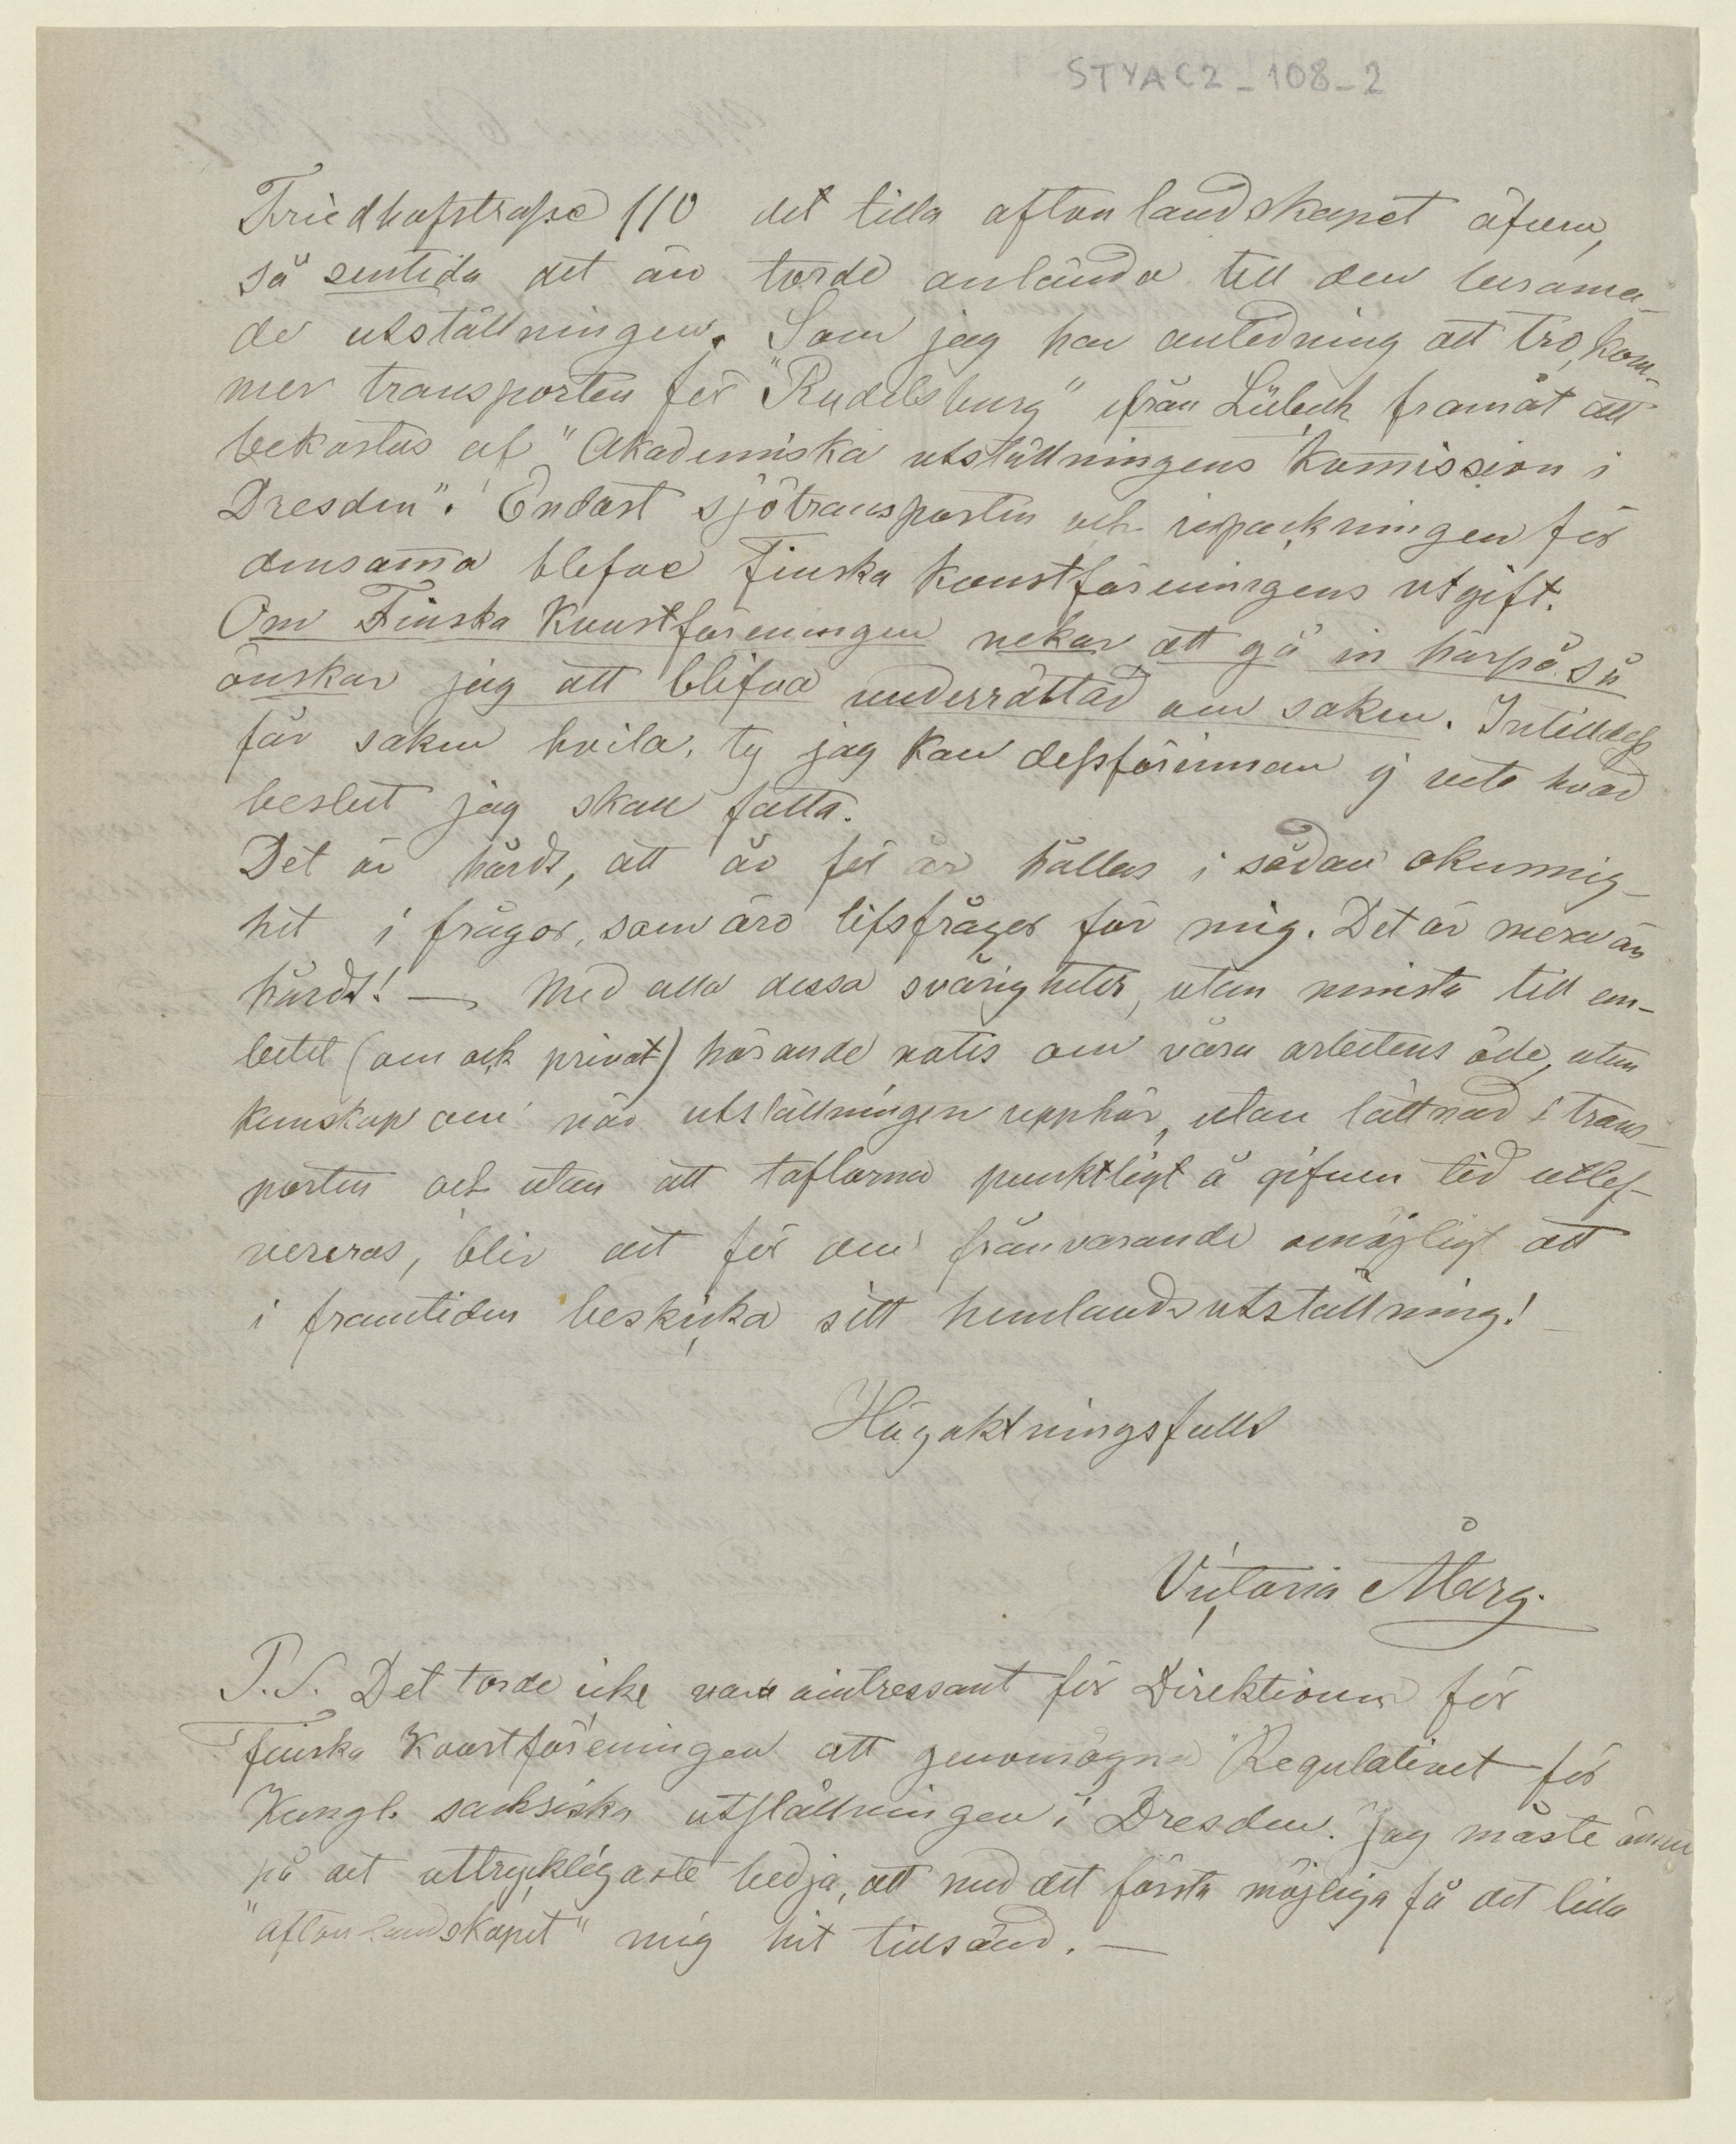 STYAC2_108_2
Friedhofstraſse 110 det lilla aftonlandskapet äfven,
så sentida det än torde anlända till den berama-
de utställningen. Som jag har anledning att tro, kom-
mer transporten för "Rudelsburg" ifrån Lübeck framåt att
bekostas af "Akademiska utställningens Komission i
Dresden". Endast sjötransporten och inpackningen för
densamma blefve Finska Konstföreningens utgift.
Om Finska Konstföreningen nekar att gå in härpå så
önskar jag att blifva underrättad om saken. Intilldeſs
får saken hvila, ty jag kan deſsförinnan ej veta hvad
beslut jag skall fatta.
Det är hårdt, att år för år hållas i sådan okunnig-
het i frågor, som äro lifsfrågor för mig. Det är mera än
hårdt! — Med alla dessa svårigheter, utan minsta till em-
betet (om ock privat) hörande notis om våra arbetens öde, utan
kunskap om när utställningen upphör, utan lättnad i trans-
porten och utan att taflorna punktligt å gifven tid utlef-
vereras, blir det för den frånvarande omöjligt att
i framtiden beskicka sitt hemlands utställning! —
Högaktningsfullt
Victoria Åberg.
P.S. Det torde icke vara ointressant för Direktionen för
Finska Konstföreningen att genomögna "Regulativet för
Kungl. sachsiska utställningen i Dresden." Jag måste ännu
på det uttryckligaste bedja, att med det första möjliga få det lilla
"aftonlandskapet" mig hit tillsänd. —